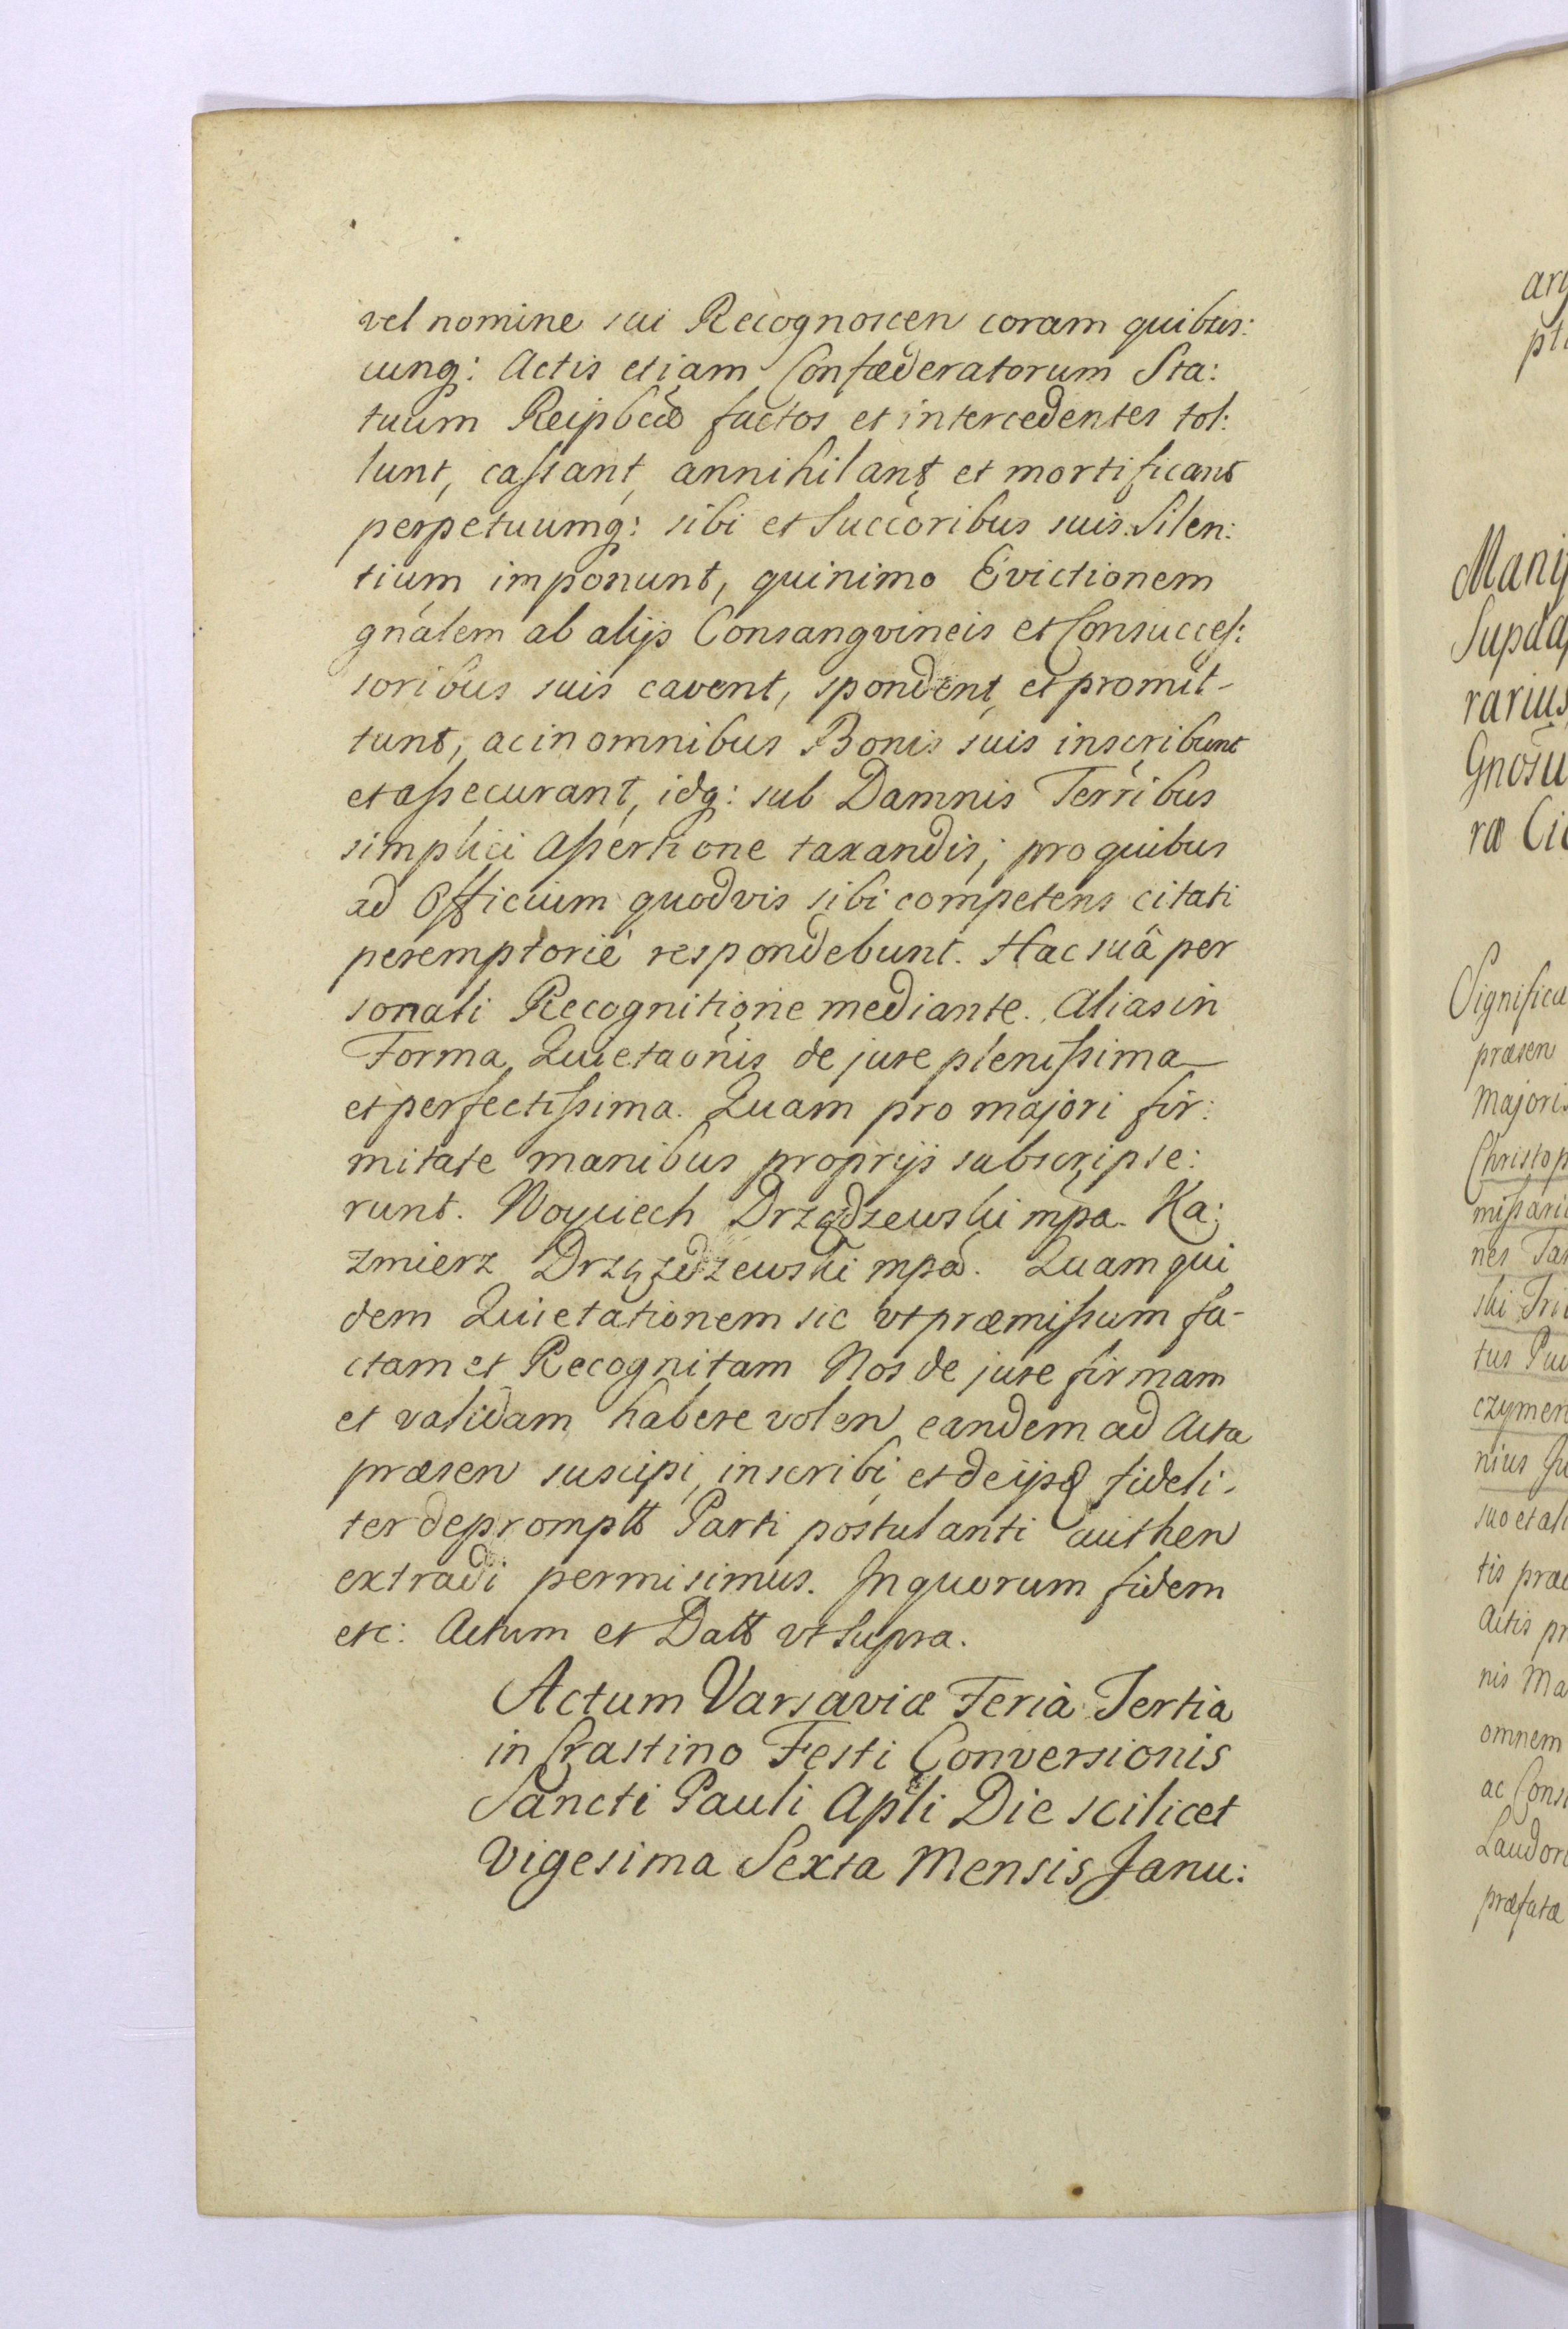 vel nomine sui Recognoscen coram quibus:
cunq: Actis etiam Confæderatorum Sta:
tuum Reipbcæ factos et intercedentes tol:
lunt, cassant, annihilant, et mortificant
perpetuumq: sibi et Succoribus suis Silen:
tium imponunt, quinimo Evictionem
gnalem ab alijs Consangvineis et Consucces:
soribus suis cavent, spondent, et promit-
tunt, ac in omnibus Bonis suis inscribunt
et assecurant, idq: sub Damnis Terribus
simplici Assertione taxandis; pro quibus
ad Officium quodvis sibi competens citati
peremptorie respondebunt. Hac suâ per
sonali Recognitione mediante. Alias in
Forma Quietaonis de jure plenissima
et perfectissima. Quam pro majori fir:
mitate manibus proprijs subscripse:
runt. Woyciech Drządzewski mpa. Ka:
zmierz Drzązdzewski mpa. Quam qui
dem Quietationem sic vt præmissum fa-
ctam et Recognitam Nos de jure firmam
et validam habere volen eandem ad Acta
præsen suscipi, inscribi, et de ijsd fideli-
ter depromptt Parti postulanti authen
extradi permisimus. In quorum fidem
etc: Actum et Datt vt Supra.
Actum Varsaviæ Feria Tertia
in Crastino Festi Conversionis
Sancti Pauli Apli Die scilicet
Vigesima Sexta Mensis Janu:
ary
Manij
rarius
Gnosu
ræ Ci
Significa
præsen
Majoris
Christop
nes Tar
ski Tri
tus Pu
czymen
nius Ju
suo et al
tis præ
Actis pr
nis Ma
omnem
ac Cons
Laudor
præfatæ